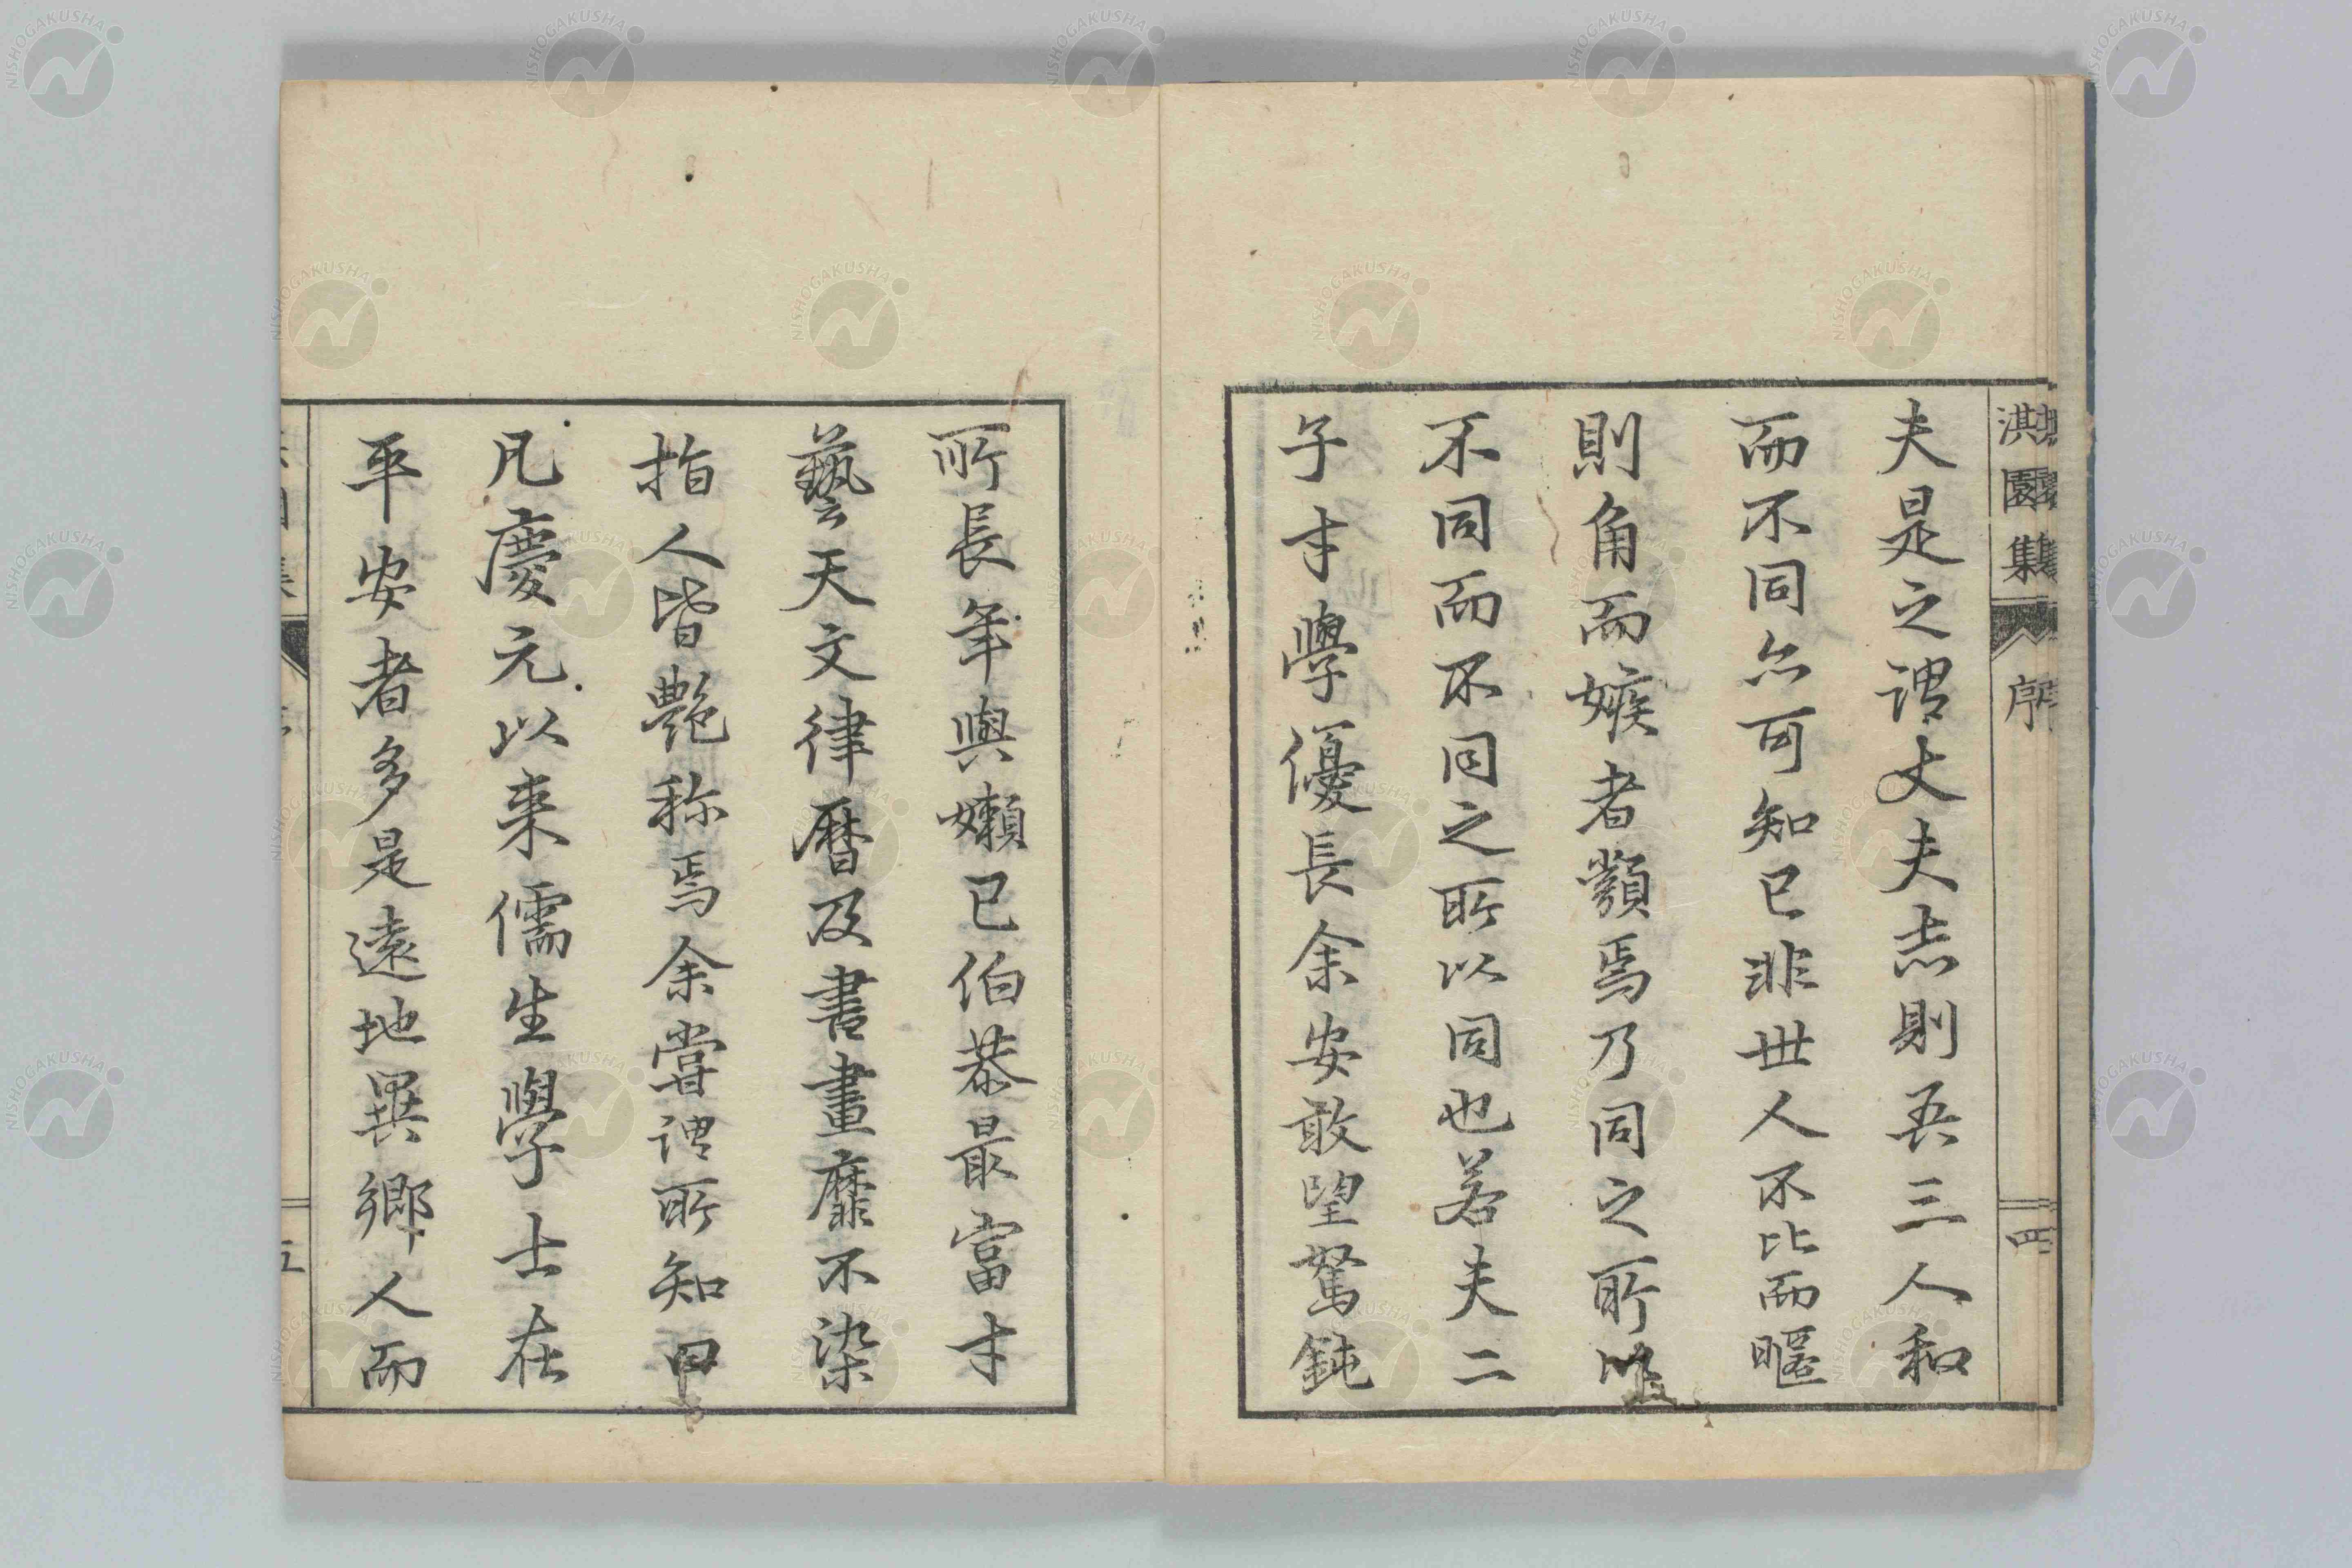 淇園集 序 四
夫是之謂丈夫志則吾三人和
而不同亦可知已非世人不比而暱
則角而嫉者纇焉乃同之所以
不同而不同之所以同也若夫二
子才學優長余安敢望駑鈍
所長年與嬾已伯恭最富才
藝天文律曆及書畫靡不染
指人皆艶称焉余嘗謂所知曰
凡慶元以来儒生學士在
平安者多是遠地異鄉人而